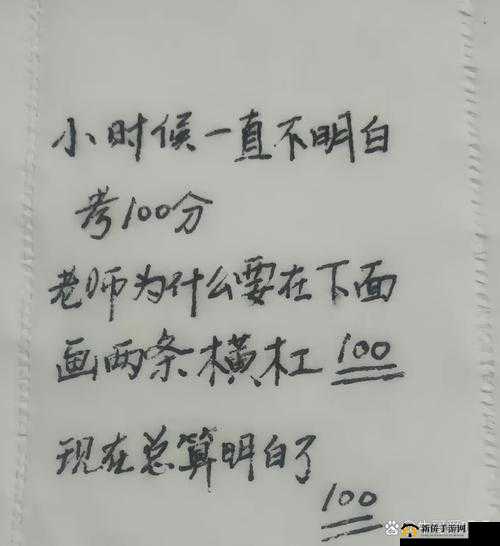 小时候一直不明白
考100分
老师为什么要在下面
画两条横杠 100
现在总算明白了
100
新侨手游网